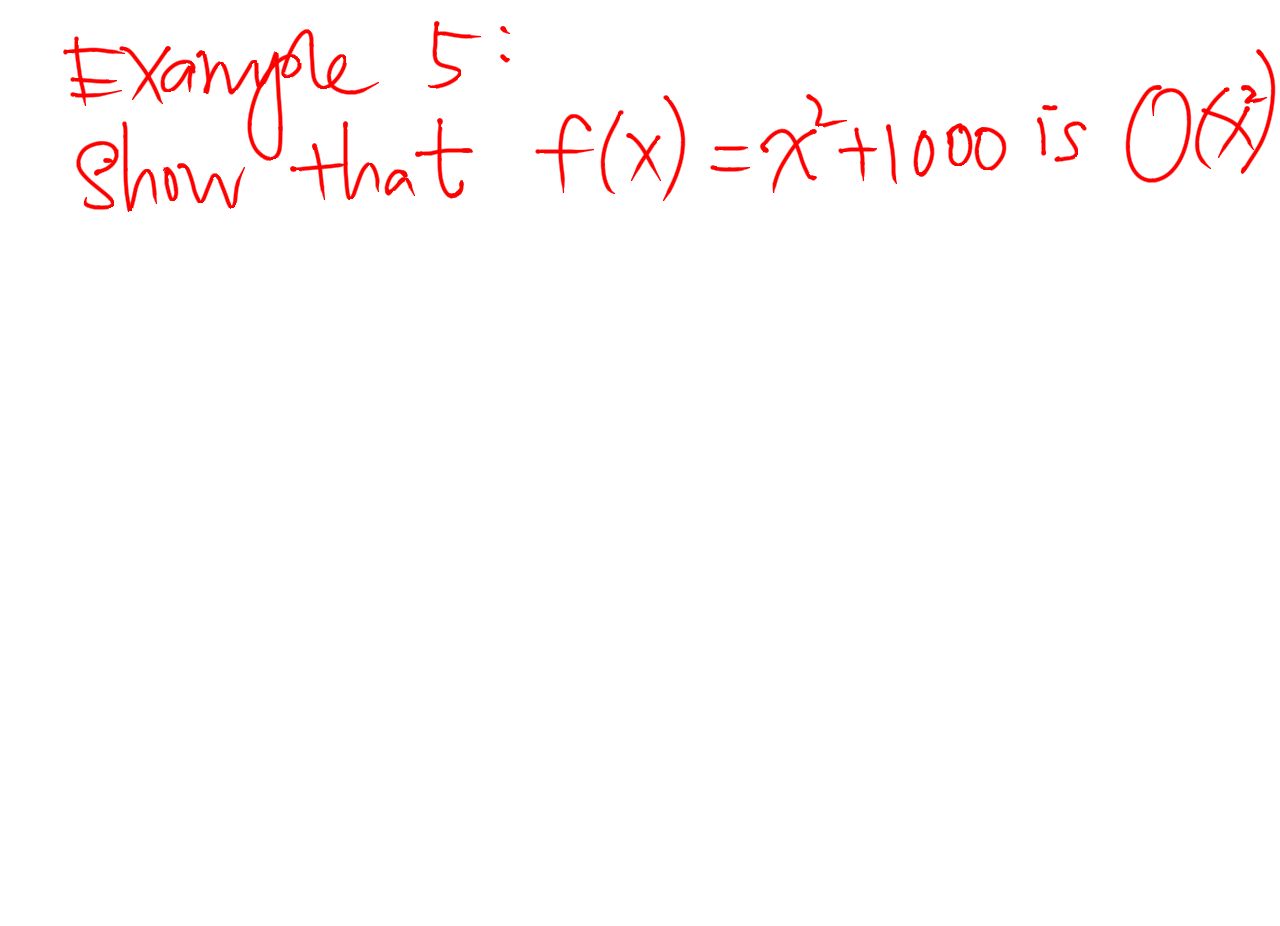 Example 5:
Show that f(x) = x² + 1000 is O(x²)